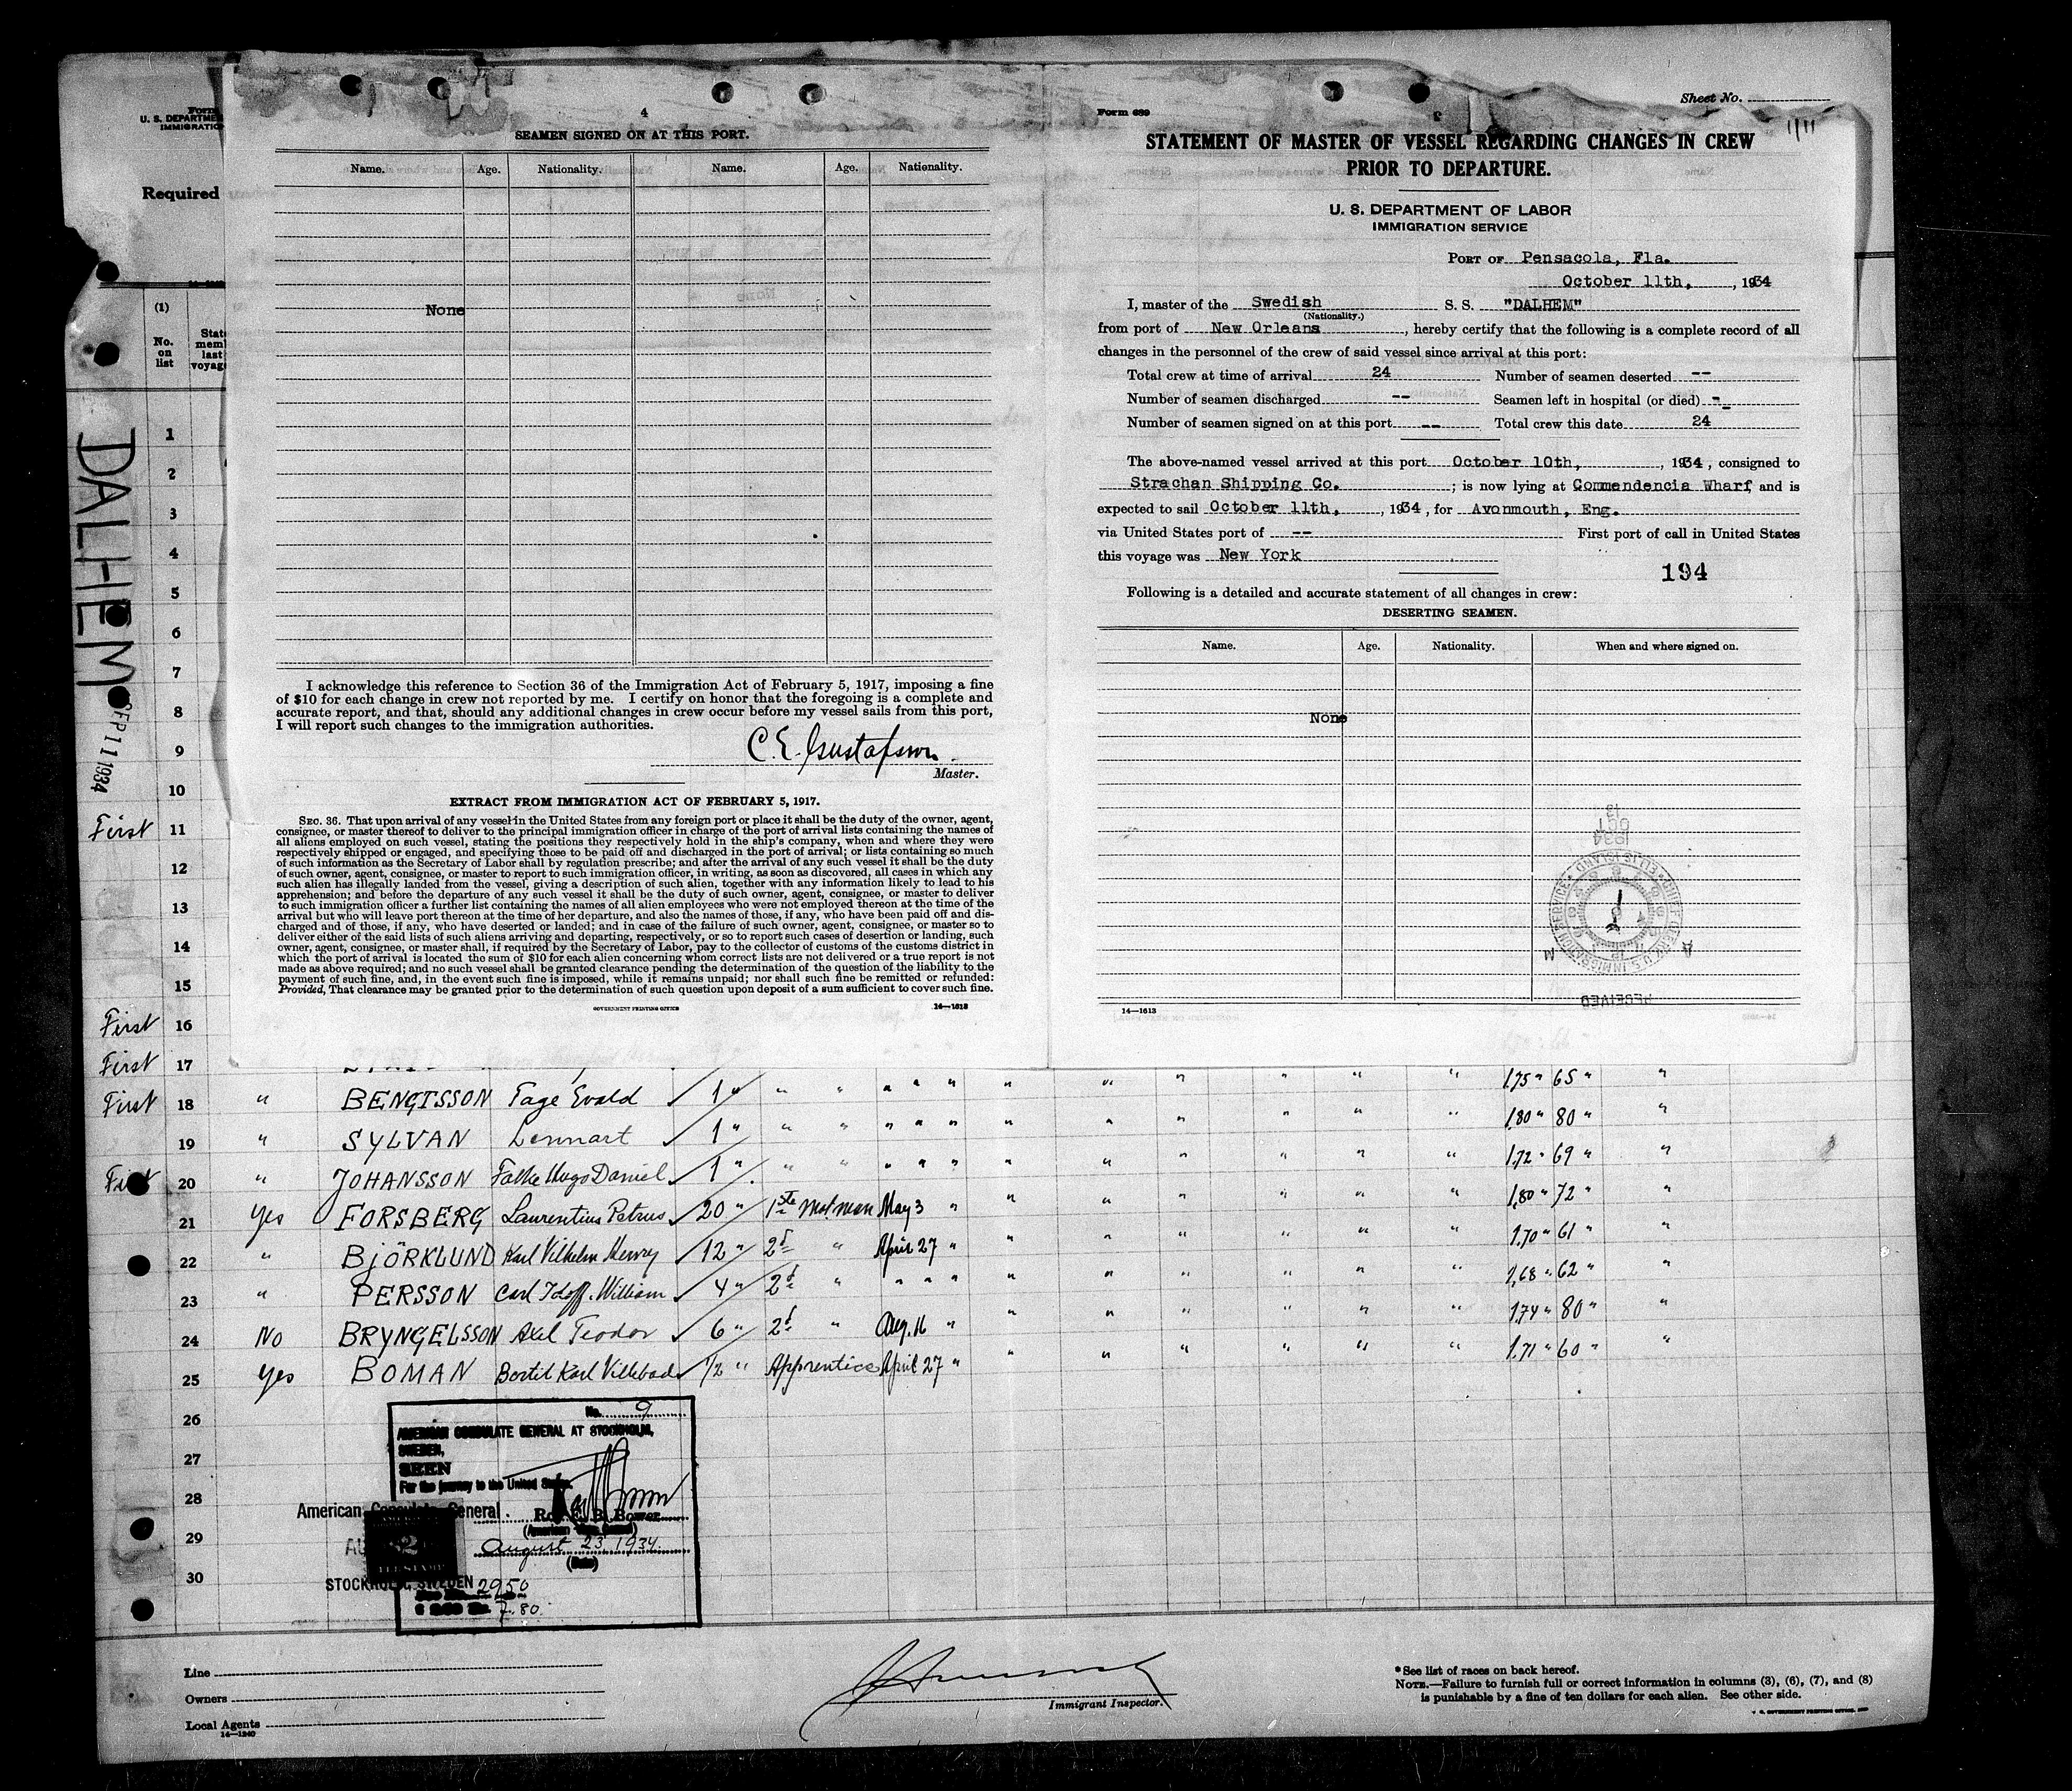 Form
U. S. DEPARTME
IMMIGRATIO
Required
(1)
No.
on
list
State
mem
last
voyag
DALHEM
SEP 11 1934
1
2
3
4
5
6
7
8
9
10
First 11
12
13
14
15
First 16
First 17
4
SEAMEN SIGNED ON AT THIS PORT.
Name. Age. Nationality. Name. Age. Nationality.
None
I acknowledge this reference to Section 36 of the Immigration Act of February 5, 1917, imposing a fine
of $10 for each change in crew not reported by me. I certify on honor that the foregoing is a complete and
accurate report, and that, should any additional changes in crew occur before my vessel sails from this port,
I will report such changes to the immigration authorities.
C. E. Gustafsson
Master.
EXTRACT FROM IMMIGRATION ACT OF FEBRUARY 5, 1917.
SEC. 36. That upon arrival of any vessel in the United States from any foreign port or place it shall be the duty of the owner, agent,
consignee, or master thereof to deliver to the principal immigration officer in charge of the port of arrival lists containing the names of
all aliens employed on such vessel, stating the positions they respectively hold in the ship's company, when and where they were
respectively shipped or engaged, and specifying those to be paid off and discharged in the port of arrival; or lists containing so much
of such information as the Secretary of Labor shall by regulation prescribe; and after the arrival of any such vessel it shall be the duty
of such owner, agent, consignee, or master to report to such immigration officer, in writing, as soon as discovered, all cases in which any
such alien has illegally landed from the vessel, giving a description of such alien, together with any information likely to lead to his
apprehension; and before the departure of any such vessel it shall be the duty of such owner, agent, consignee, or master to deliver
to such immigration officer a further list containing the names of all alien employees who were not employed thereon at the time of the
arrival but who will leave port thereon at the time of her departure, and also the names of those, if any, who have been paid off and dis-
charged and of those, if any, who have deserted or landed; and in case of the failure of such owner, agent, consignee, or master so to
deliver either of the said lists of such aliens arriving and departing, respectively, or so to report such cases of desertion or landing, such
owner, agent, consignee, or master shall, if required by the Secretary of Labor, pay to the collector of customs of the customs district in
which the port of arrival is located the sum of $10 for each alien concerning whom correct lists are not delivered or a true report is not
made as above required; and no such vessel shall be granted clearance pending the determination of the question of the liability to the
payment of such fine, and, in the event such fine is imposed, while it remains unpaid; nor shall such fine be remitted or refunded:
Provided, That clearance may be granted prior to the determination of such question upon deposit of a sum sufficient to cover such fine.
GOVERNMENT PRINTING OFFICE 14—1613
Sheet No.
Form 689
STATEMENT OF MASTER OF VESSEL REGARDING CHANGES IN CREW
PRIOR TO DEPARTURE.
U. S. DEPARTMENT OF LABOR
IMMIGRATION SERVICE
PORT OF Pensacola, Fla.
October 11th, , 1934
I, master of the Swedish S. S. "DALHEM"
(Nationality.)
from port of New Orleans , hereby certify that the following is a complete record of all
changes in the personnel of the crew of said vessel since arrival at this port:
Total crew at time of arrival 24 Number of seamen deserted --
Number of seamen discharged -- Seamen left in hospital (or died) --
Number of seamen signed on at this port -- Total crew this date 24
The above-named vessel arrived at this port October 10th, , 1934, consigned to
Strachan Shipping Co. ; is now lying at Commendencia Wharf, and is
expected to sail October 11th, , 1934, for Avonmouth, Eng.
via United States port of -- First port of call in United States
this voyage was New York
194
Following is a detailed and accurate statement of all changes in crew:
DESERTING SEAMEN.
Name. Age. Nationality. When and where signed on.
None
1934
OCT
13
RECEIVED
14—1613
First 18 " BENGTSSON Tage Evald 1 " " " " " " " " " " " " 1.75 " 65 " "
19 " SYLVAN Lennart 1 " " " " " " " " " " " " 1.80 " 80 " "
First 20 " JOHANSSON Falke Hugo Daniel 1 " " " " " " " " " " " " 1.72 " 69 " "
21 Yes FORSBERG Laurentius Petrus 20 " 1ste Mot.man May 3 " " " " " " " 1,80 " 72 " "
22 " BJÖRKLUND Karl Vilhelm Henry 12 " 2d " April 27 " " " " " " " 1.70 " 61 " "
23 " PERSSON Carl William 4 " 2d " " " " " " " " " " 1,68 " 62 " "
24 No BRYNGELSSON Axel Teodor 6 " 2d " Aug. 16 " " " " " " " 1.74 " 80 " "
25 Yes BOMAN Bertil Karl Villebad 1/2 " Apprentice April 27 " " " " " " " 1.71 " 60 " "
26
27
28
29
30
No. 9
AMERICAN CONSULATE GENERAL AT STOCKHOLM,
SWEDEN,
SEEN
For the journey to the United States.
American Consulate General
Roy E. B. Bower
August 23, 1934.
(Date)
STOCKHOLM, SWEDEN 2950
7.80
Line
Owners
Local Agents
14—1240
Immigrant Inspector.
*See list of races on back hereof.
NOTE.—Failure to furnish full or correct information in columns (3), (6), (7), and (8)
is punishable by a fine of ten dollars for each alien. See other side.